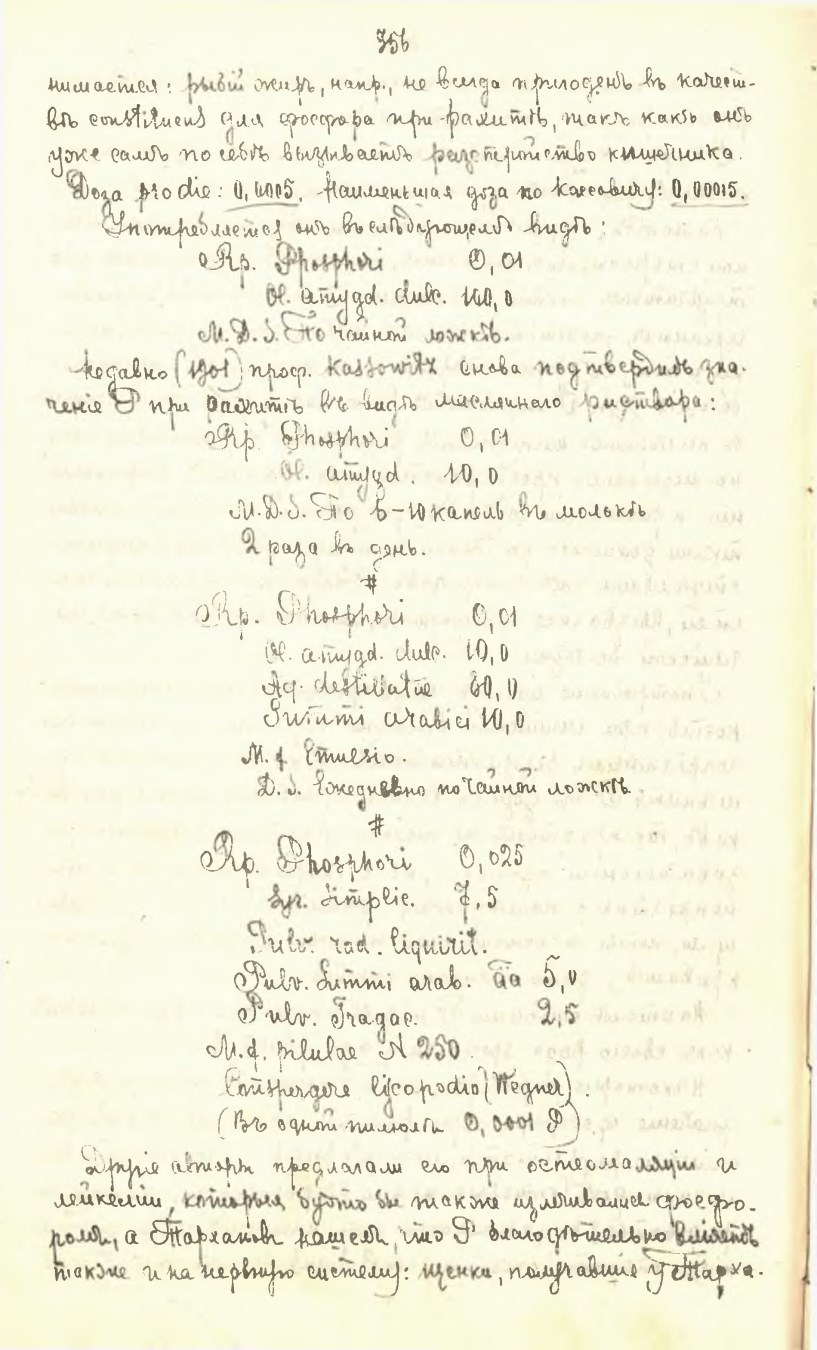 356
нимается: рыбій жиръ, напр., не всегда пригоденъ въ качест-
вѣ constituens для фосфора при рахитѣ, такъ какъ онъ
уже самъ по себѣ вызываетъ разстройство кишечника.
Доза pro die: 0,0005. Наименьшая доза по Кассовичу: 0,00015.
Употребляется онъ въ слѣдующемъ видѣ:
Rp. Phosphori 0,01
Ol. amygd. dulc. 100,0
M.D.S. По чайной ложкѣ.
Недавно (1901) проф. Kassowitz снова подтвердилъ зна-
ченіе P при рахитѣ въ видѣ маслянного раствора:
Rp. Phosphori 0,01
Ol. amygd. 10,0
M.D.S. По 5-10 капель въ молокѣ
2 раза въ день.
#
Rp. Phosphori 0,01
Ol. amygd. dulc. 10,0
Aq. destillatae 80,0
Gummi arabici 10,0
M.f. Emulsio.
D.S. Ежедневно по чайной ложкѣ.
#
Rp. Phosphori 0,025
Syr. Simplic. 7,5
Pulv. rad. liquirit.
Pulv. Gummi arab. āā 5,0
Pulv. Tragac. 2,5
M.f. pilulae N 250.
Conspergere lycopodio (Wegner).
(Въ одной пилюлѣ 0,0001 P)
Другіе авторы предлагали его при остеомаляціи и
лейкеміи, которыя будто бы также излѣчивались фосфо-
ромъ, а Тархановъ нашелъ, что P благодѣтельно вліяетъ
также и на нервную систему: щенки, получавшіе у Тарха-